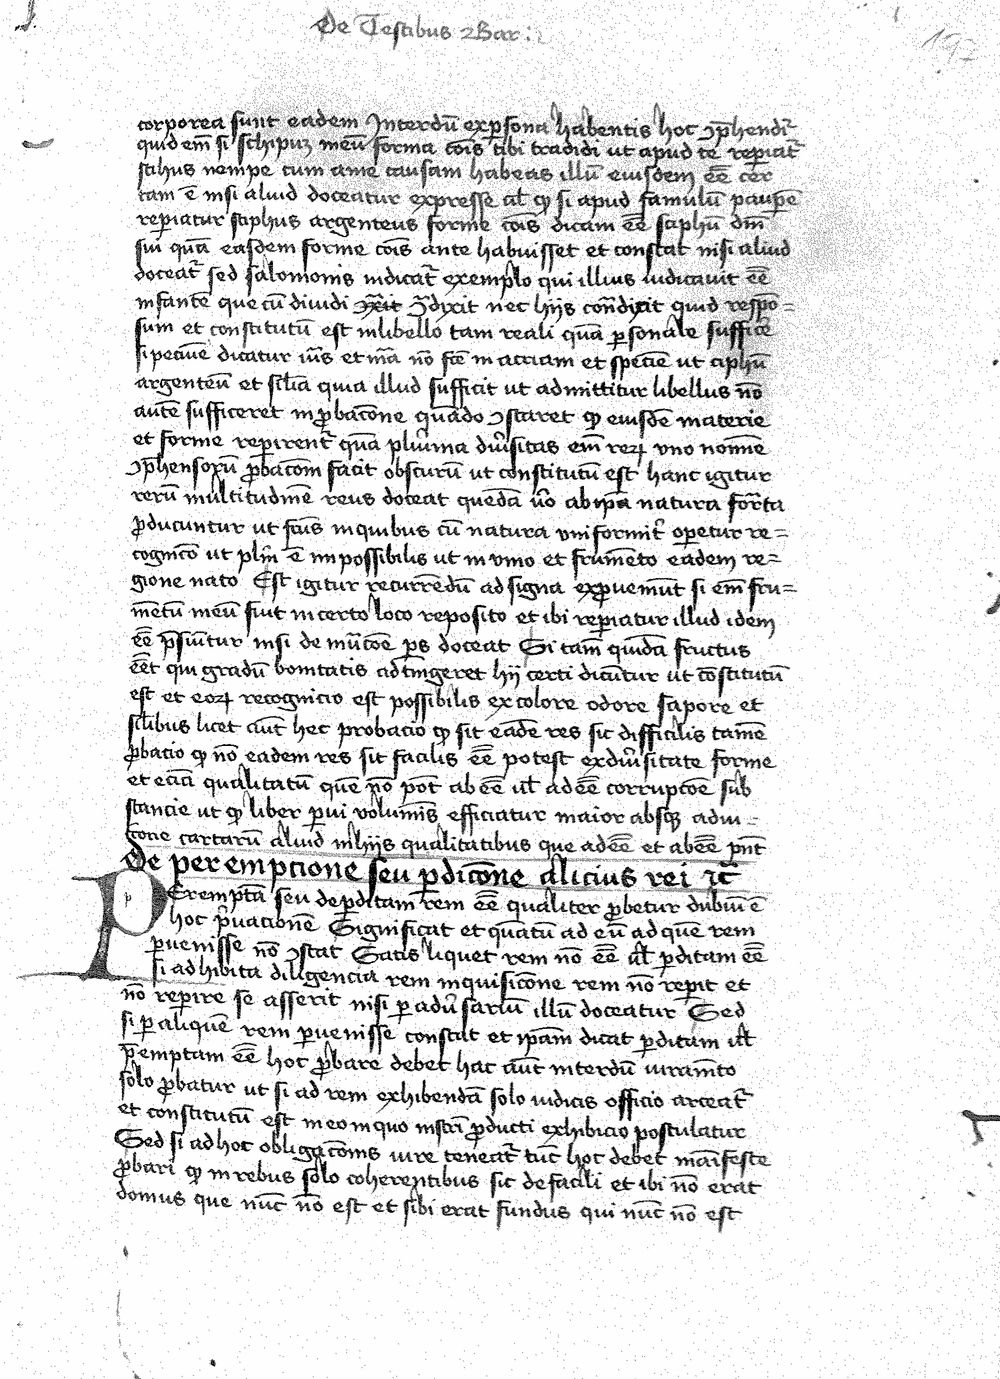 De Testibus 2 Bar:
192
corporea sunt eadem Interdū exꝑsona habentis hoc ꝯp̄hendit᷑
quid em̄ si schipuꝫ meū forma cōis tibi tradidi ut apud te reꝑiat᷑
stihus nempe cum ame causam habeas illū eiusdem ēē cer
tam ē nisi aliud doceatur expresse al̄ ꝙ si apud famulū pauꝑē
reꝑiatur sciphus argenteus forme cōis dicam ēē scaphū dn̄i
sui quā easdem forme cōis ante habuisset et constat nisi aliud
doceat᷑ sed salomonis iudicat᷑ exemplo qui illius iudicauit ēē
infantē que cū diuidi ꝯdixit nec hijs con̄dixit quid respō-
sum et constitutū est inlibello tam reali quā ꝑsonale sufficē
si pecuīe dicatur et nō in acciam et speciē ut ciphū
argenteū et sil̄ia quia illud sufficit ut admittitur libellus nō
autē sufficeret in ꝓbacōne quādo ꝯstaret ꝙ eiusdē materie
et forme reꝑirent᷑ quā plurīma diu̅sitas em̄ reꝝ vno nomīe
ꝯp̄hensoꝝū ꝓbacōm facit obscurū ut constitutū est hanc igitur
rerū multitudinē reus doceat quedā u̅o abip̄a natura for̄ta
ꝓducuntur ut scūs inquibus cū natura vniformit᷑ oꝑetur re-
cognicō ut plīm̄ ē impossibilis ut in vino et frumēto eadem re-
gione nato Est igitur recurrēdū ad signa exꝓuemūt si em̄ fru-
mētū meū fuit incerto loco reposito et ibi reꝑiatur illud idem
ēē p̄sumītur nisi de mūcōe ꝑs doceat Si tam̄ quidā fructus
ēēt qui gradū bonitatis adtingeret hij certi dicūtur ut cōstitutū
est et eoꝝ recognicio est possibilis ex colore odore sapore et
sil̄ibus licet aūt hec probacio ꝙ sit eadē res sic difficilis tamē
ꝓbacio ꝙ nō eadem res sit facilis ēē potest exdiu̅sitate forme
et eciā qualitatū quē nō pōt ab ēē ul̄ adēē corrupcōe sub
stancie ut ꝙ liber ꝑui volumīs efficiatur maior absqꝫ adiu-
cone cartarū aliud inhijs qualitatibus que adēē et abēē pn̄t
De peremptione seu ꝑdicōne alicuius rei ⁊c̄
PEremptā seu deꝑditam rem ēē qualiter ꝓbetur dubiū ē
hoc p̄uacionē Significat et quātū ad eū ad quē rem
ꝑuenisse nō ꝯstat Satis liquet rem nō ēē al̄ ꝑditam ēē
si adhibita diligencia rem inquisicōne rem nō reꝑit et
nō reꝑire se asserit nisi ꝑ adu̅sariū illū doceatur Sed
si ꝑ aliquē rem ꝑuenisse constat et ip̄am dicat ꝑditam ul̄
p̄emptam ēē hoc ꝓbare debet hac aūt interdū iuramēto
solo ꝓbatur ut si ad rem exhibendā solo iudicis officio arceat᷑
et constitutū est in eo inquo instrī ꝓducti exhibicio postulatur
Sed si adhoc obligacōnis iure teneat᷑ tūc hoc debet manīfeste
ꝓbari ꝙ in rebus solo coherentibus sic defacili et ibi nō erat
domus que nūc nō est et sibi erat fundus qui nūc nō est